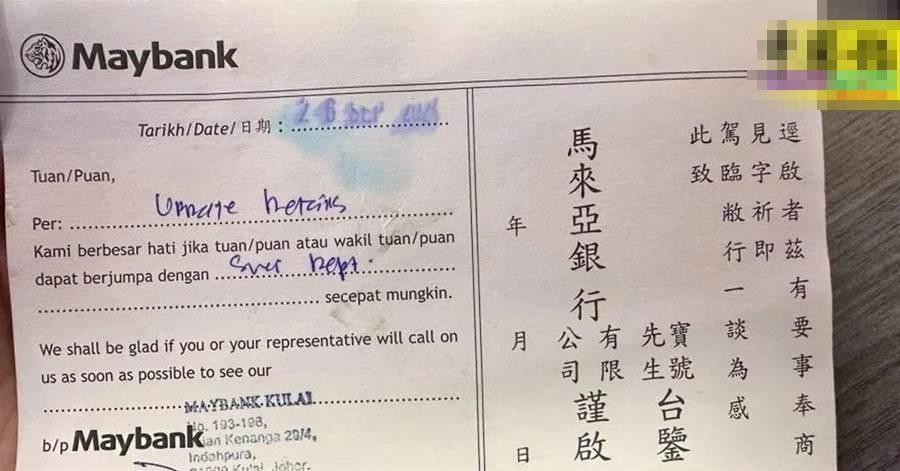 Maybank
Tarikh/Date/日期:
Tuan/Puan,
Per: Update Details
Kami berbesar hati jika tuan/puan atau wakil tuan/puan
dapat berjumpa dengan Dept.
secepat mungkin.
We shall be glad if you or your representative will call on
us as soon as possible to see our
MAYBANK KULAI
No. 193-196,
Kenanga 29/4,
Indahpura,
Kulai, Johor.
b/p Maybank
逕啟者茲有要事奉商
見字祈即
駕臨敝行一談為感
此致
寶號
先生
台鑒
馬來亞銀行有限公司謹啟
年月日